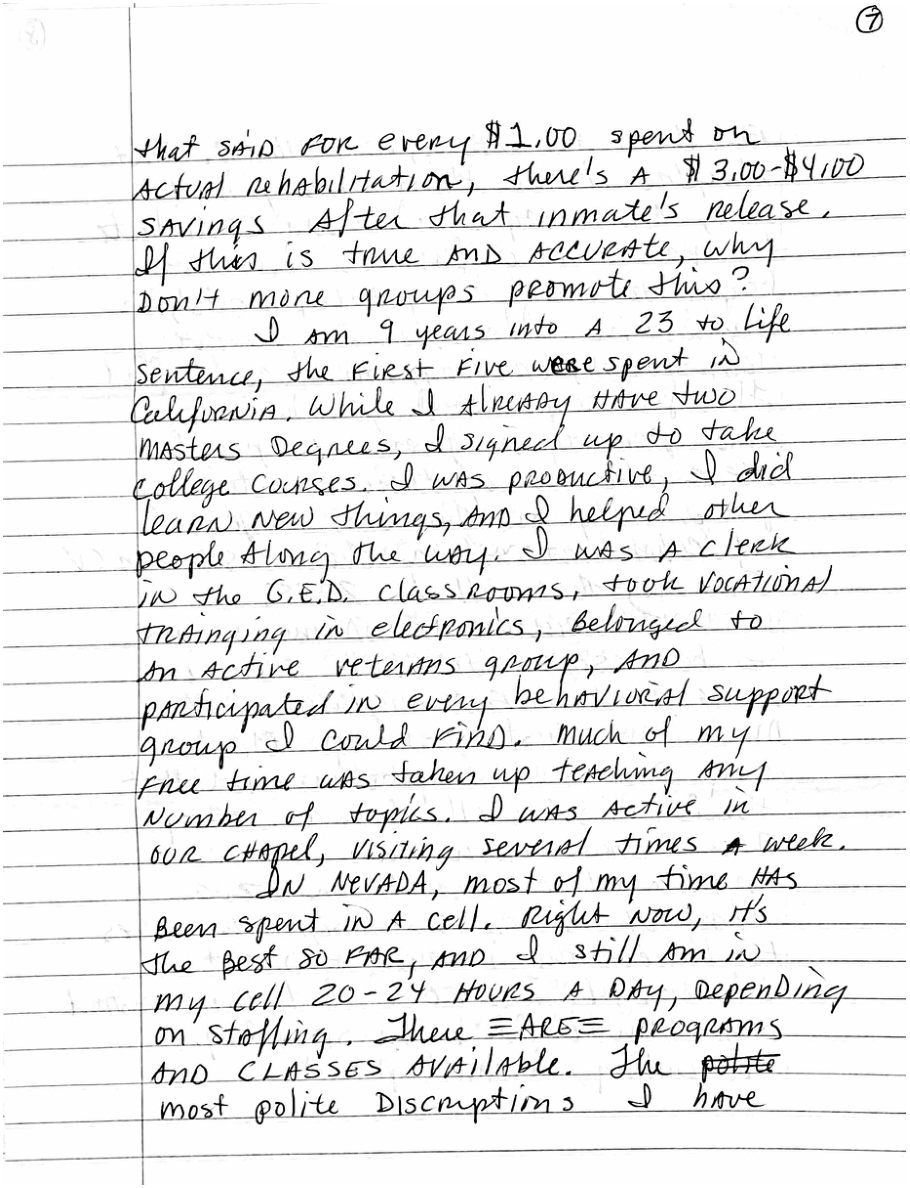 7
that said for every $1.00 spent on
actual rehabilitation, there's a $3.00-$4.00
savings after that inmate's release.
If this is true and accurate, why
don't more groups promote this?
I am 9 years into a 23 to life
sentence, the first five were spent in
California. While I already have two
masters degrees, I signed up to take
college courses. I was productive, I did
learn new things, and I helped other
people along the way. I was a clerk
in the G.E.D. classrooms, took vocational
trainging in electronics, belonged to
an active veterans group, and
participated in every behavioral support
group I could find. Much of my
free time was taken up teaching any
number of topics. I was active in
our chapel, visiting several times a week.
In Nevada, most of my time has
been spent in a cell. Right now, it's
the best so far, and I still am in
my cell 20-24 hours a day, depending
on staffing. There ≡ARE≡ programs
and classes available. The polite
most polite discriptions I have